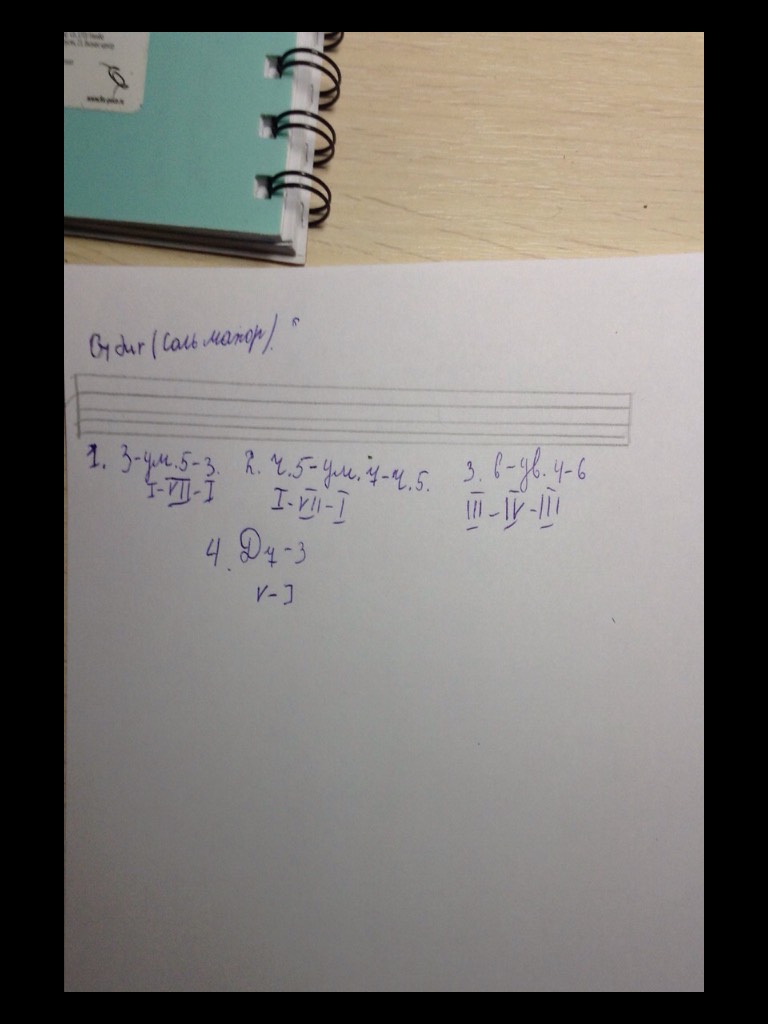 www.hv-poler.ru
G dur (Соль мажор).
1. 3-ум.5-3. 2. ч.5-ум.7-ч.5. 3. 6-ув.4-6
I-VII-I I-VII-I III-IV-III
4. D7-3
V-I